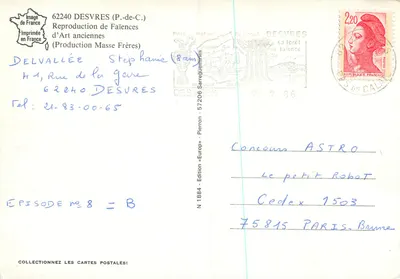 Image
de France
Imprimée
en France
62240 DESVRES (P.-de-C.)
Reproduction de Faïences
d'Art anciennes
(Production Masse Frères)
DELVALLÉE Stephanie (8 ans)
41, Rue de la gare
62240 DESVRES
Tel: 21-83-00-65
EPISODE nº 8 = B
COLLECTIONNEZ LES CARTES POSTALES!
N 1884 - Edition «Europ» - Pierron - 57206 Sarreguemines
DESVRES
2,20
Concours ASTRO
Le petit RoboT
Cedex 1503
75815 PARIS-Brune